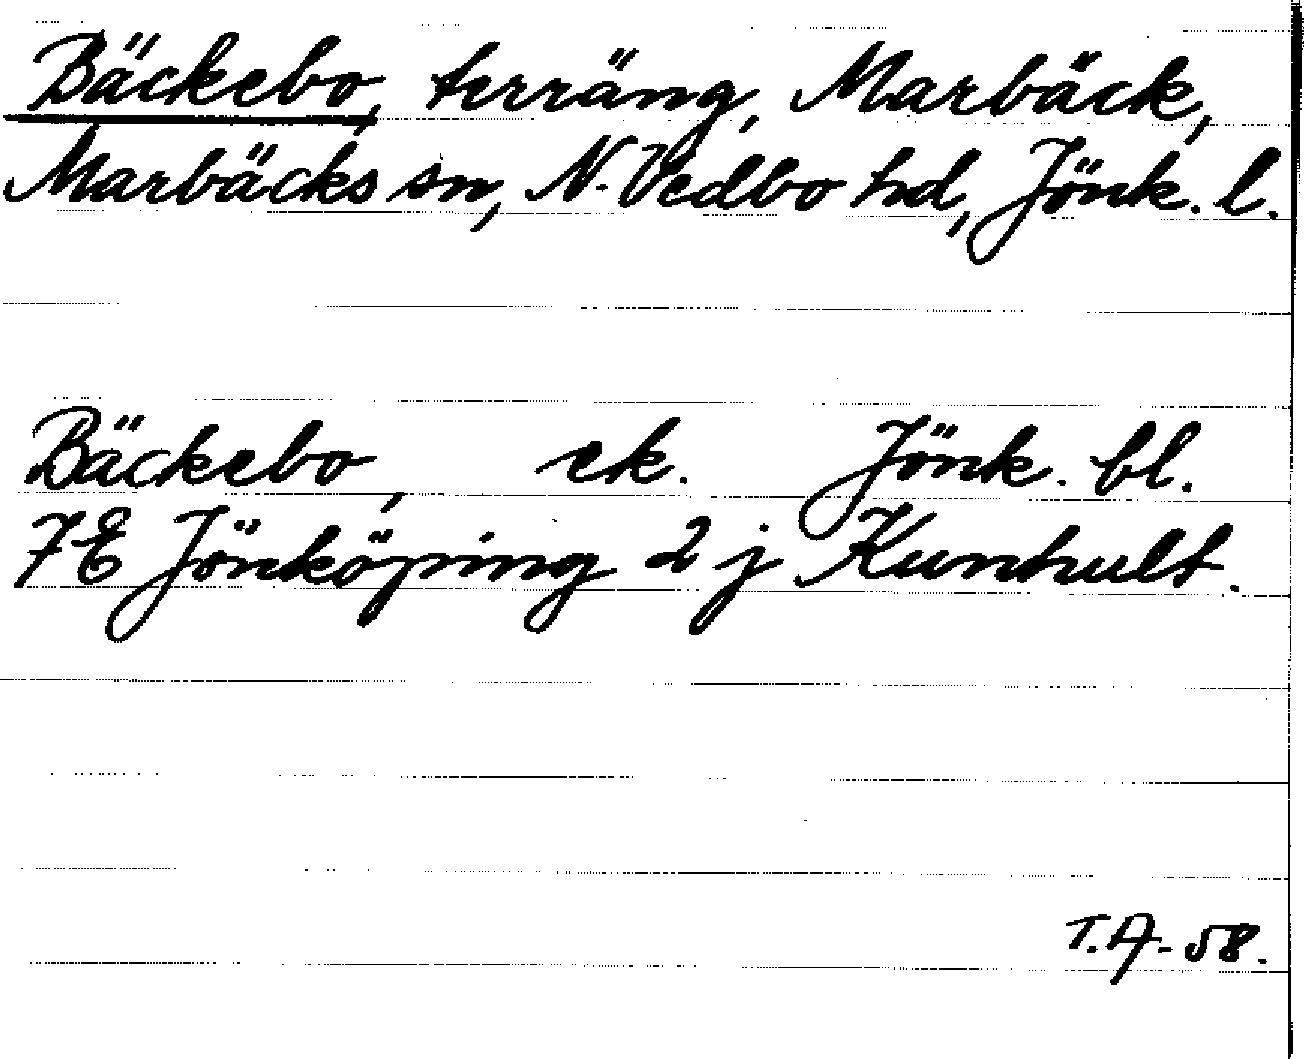 Bäckebo, terräng, Marbäck,
Marbäcks sn, N. Vedbo hd, Jönk. l.
Bäckebo, ek. Jönk. bl.
7E Jönköping 2 j Kunhult.
T.A-58.